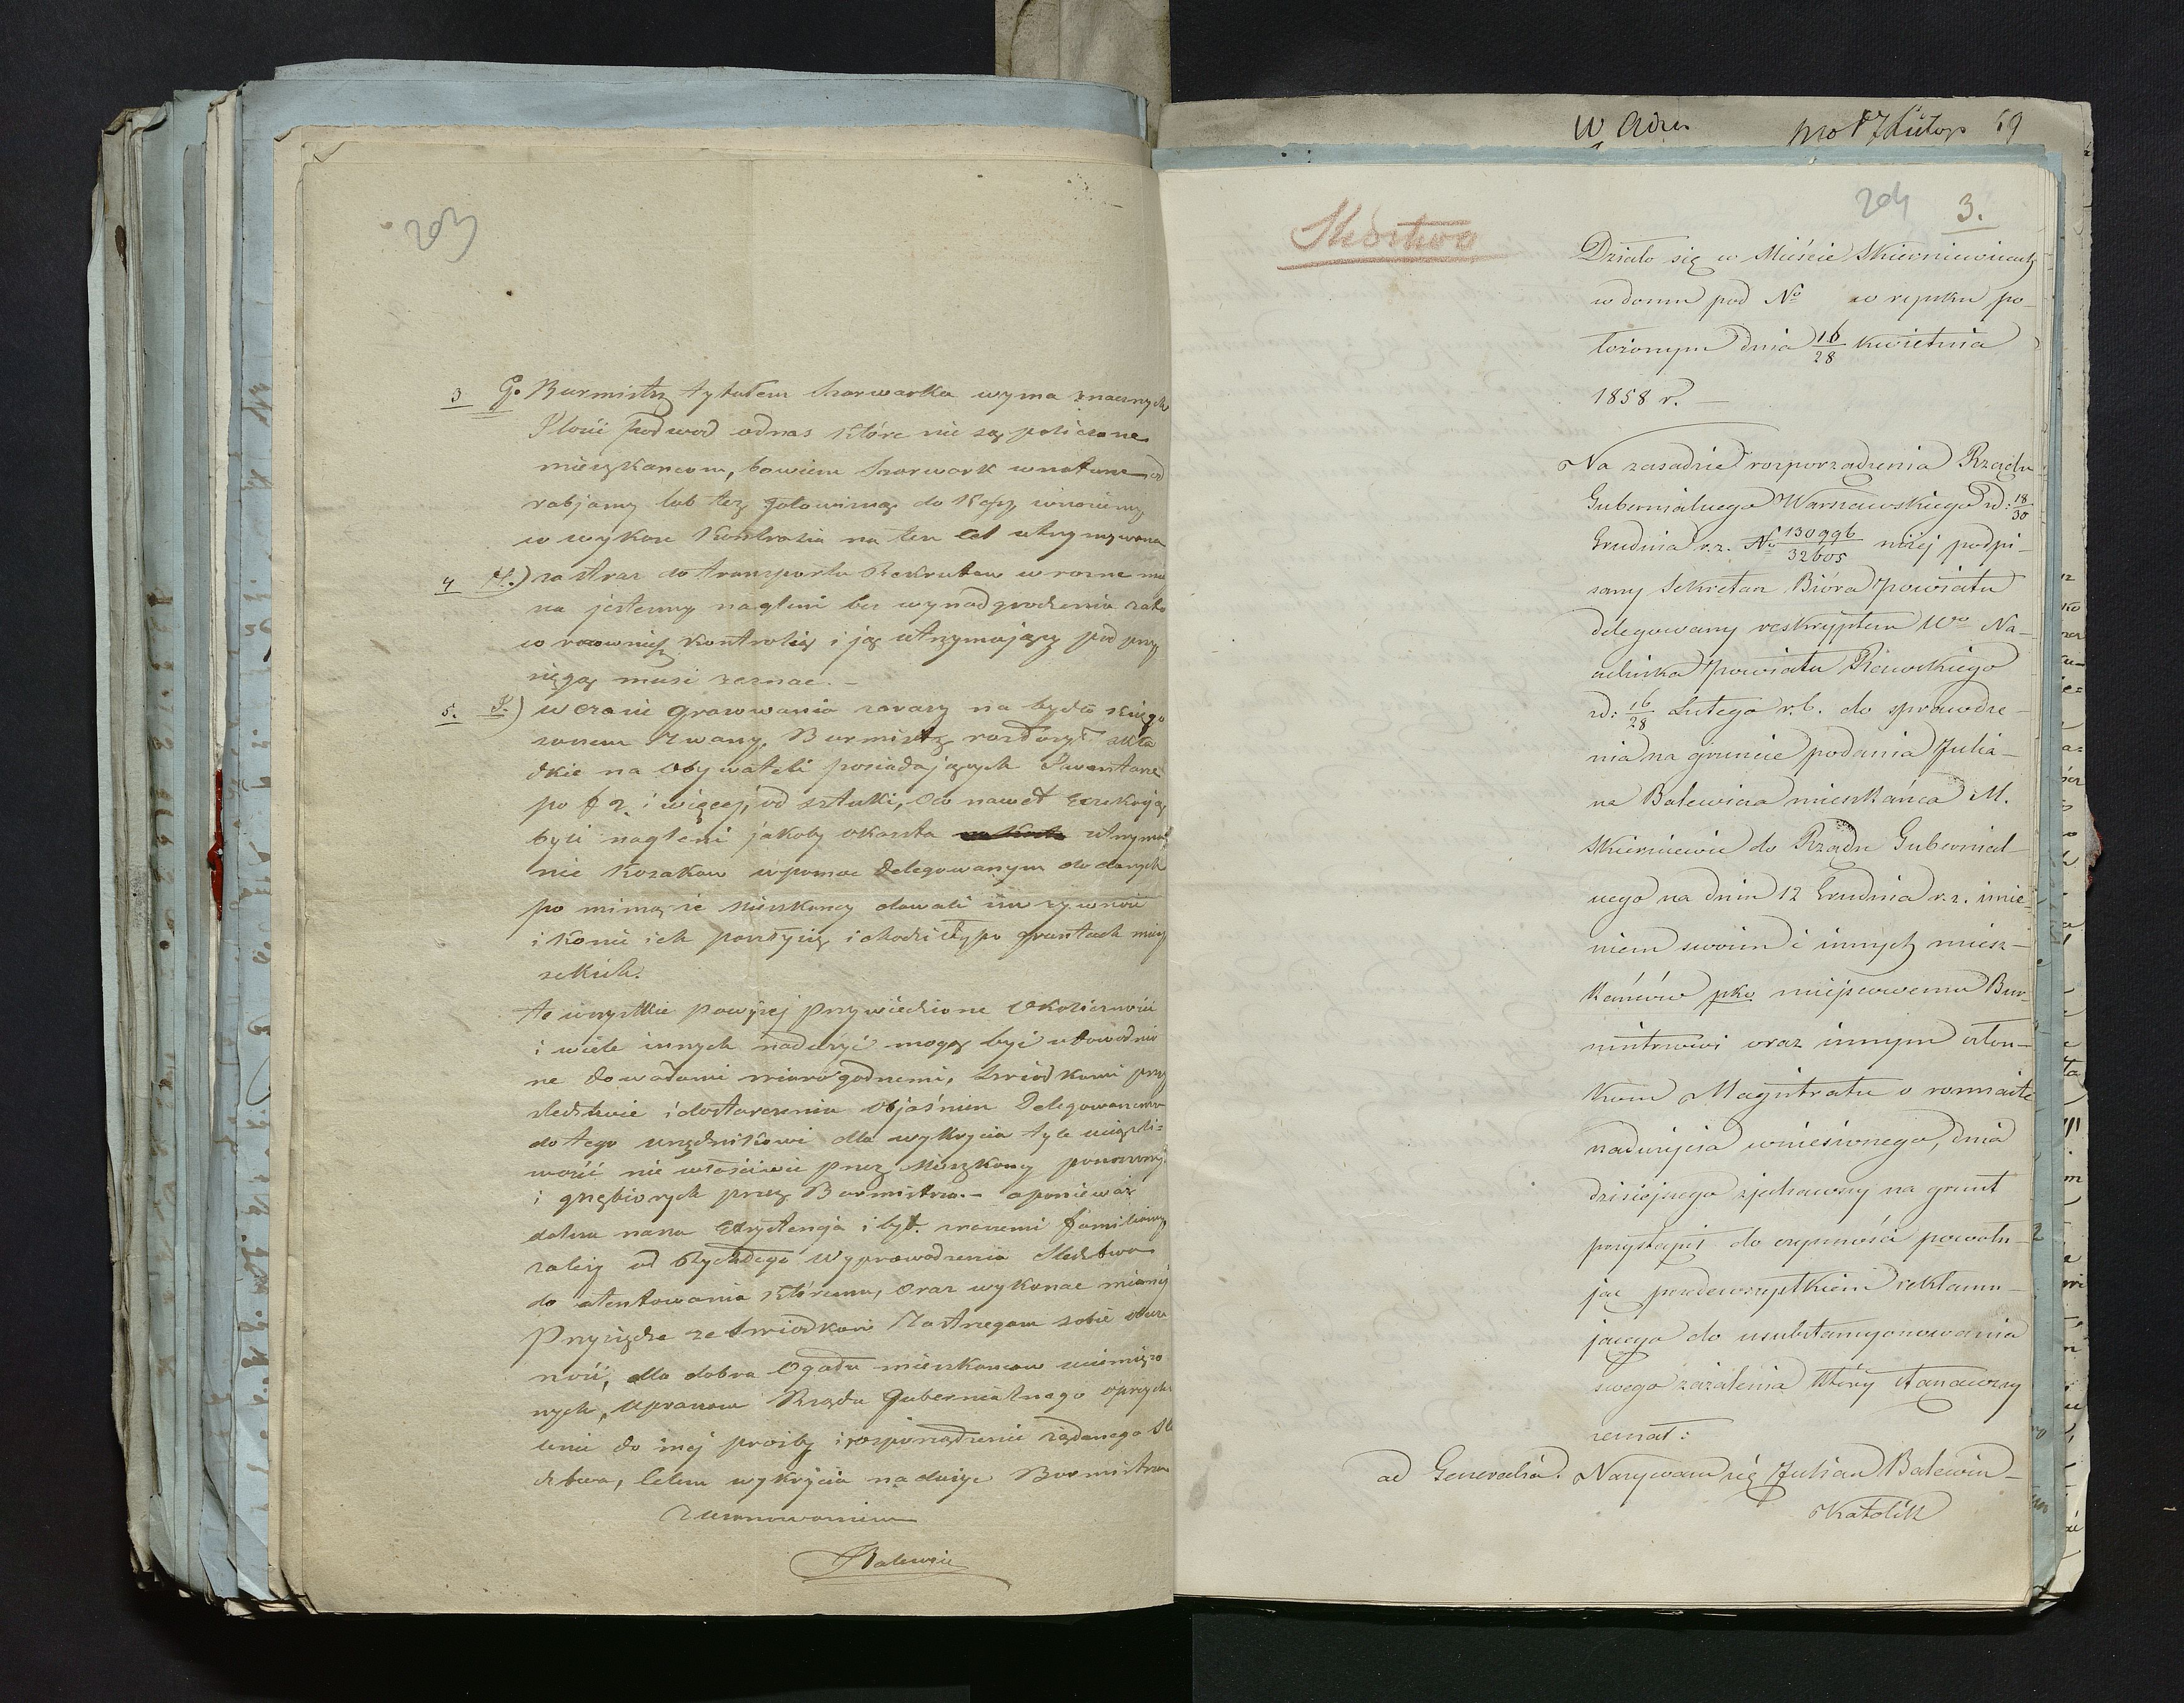 203
3 G. Burmistrz tytułem szarwarka wyma znacznych
Ilość podwod odnas które nie są policzone
mieszkancom, bowiem szarwark wnaturze od
rabjamy lub też gotowizną do Kassy wnosiemy
w wykaz Kontrola na ten cel utrzymywana
4 H.) za straz do transportu Rekrutow w rozne
na jestesmy nagleni bez wynadgrodzenia
w rownież kontrolię i ją utrzymający pod przy
sięgą musi zeznac. –
5. I.) w czasie grasowania zarazy na bydło księgo
soszem zwany, Burmistrz rozłożył skła
dkie na Obywateli posiadających Inwentarze
po f 2 i więcej, od sztuki, oco nawet Exekucją
byli nagleni jakoby okoszta utrzyma
nie kozakow w pomoc delegowanym dodanych
po mimo że Mieszkancy dawali im zywnosć
i konie ich pasły się i chodziły po gruntach miey
skich.
te wszystkie powyżej przywiedzione Okoliczności
i wiele innych nadużyć mogą być udowodnio
ne dowodami wiarogodnemi, Swiadkami przy
śledztwie i dostarczenia Objaśnien Delegowanemu
do tego urzędnikowi dla wykrycia tyle uciążli=
wość nie właściwie przez Mieszkancy
i gnębionych przez Burmistrza. – aponiewaz
dalsza nasza Exystencja i byt. znaszemi familiamy
zalezy od Rychłego Wyprowadzenia Sledztwa
do atentowania któremu, oraz wykonac mianej
Przysiędze ze Swiadkami Zastrzegam sobie
ność, dla dobra Ogołu mieszkancow
nych, Upraszam Rządu Gubernialnego oprzychy
lenie do mej prośby i rozporządzenie żądanego Sle
dztwa, Celem wykrycia nadużyc Burmistrza
Zuszanowaniem
JBalewicz
W Adres pro 17 Lutego 59
204 3.
Sledztwo
Działo się w Mieście Skierniewicach
w domu pod No w rynku po-
łożonym dnia 16/28 Kwietnia
1858 r. –
Na zasadzie rozporządzenia Rządu
Gubernialnego Warszawskiego zd: 18/30
Grudnia r.z. No 130996/32605 niżej podpi-
sany Sekretarz Bióra Powiatu
delegowany reskryptem Wo Na-
czelnika Powiatu Rawskiego
zd: 16/28 Lutego r.b. do sprawdze-
nia na gruncie podania Julia-
na Balewicza mieszkańca M.
Skierniewic do Rządu Gubernial-
nego na dniu 12 Grudnia r.z. imie-
niem swoim i innych miesz-
kańców pko miejscowemu Bur-
mistrzowi oraz innym człon-
kom Magistratu o rozmaite
nadużycia wniesionego, dnia
dzisiejszego zjechawszy na grunt
przystąpił do czynności powołu-
jąc przedewszystkiem reklamu-
jącego do usubstancyonowania
swego zażalenia który stanąwszy
zeznał:
ad Generalia. Nazywam się Julian Balewicz –
Katolik